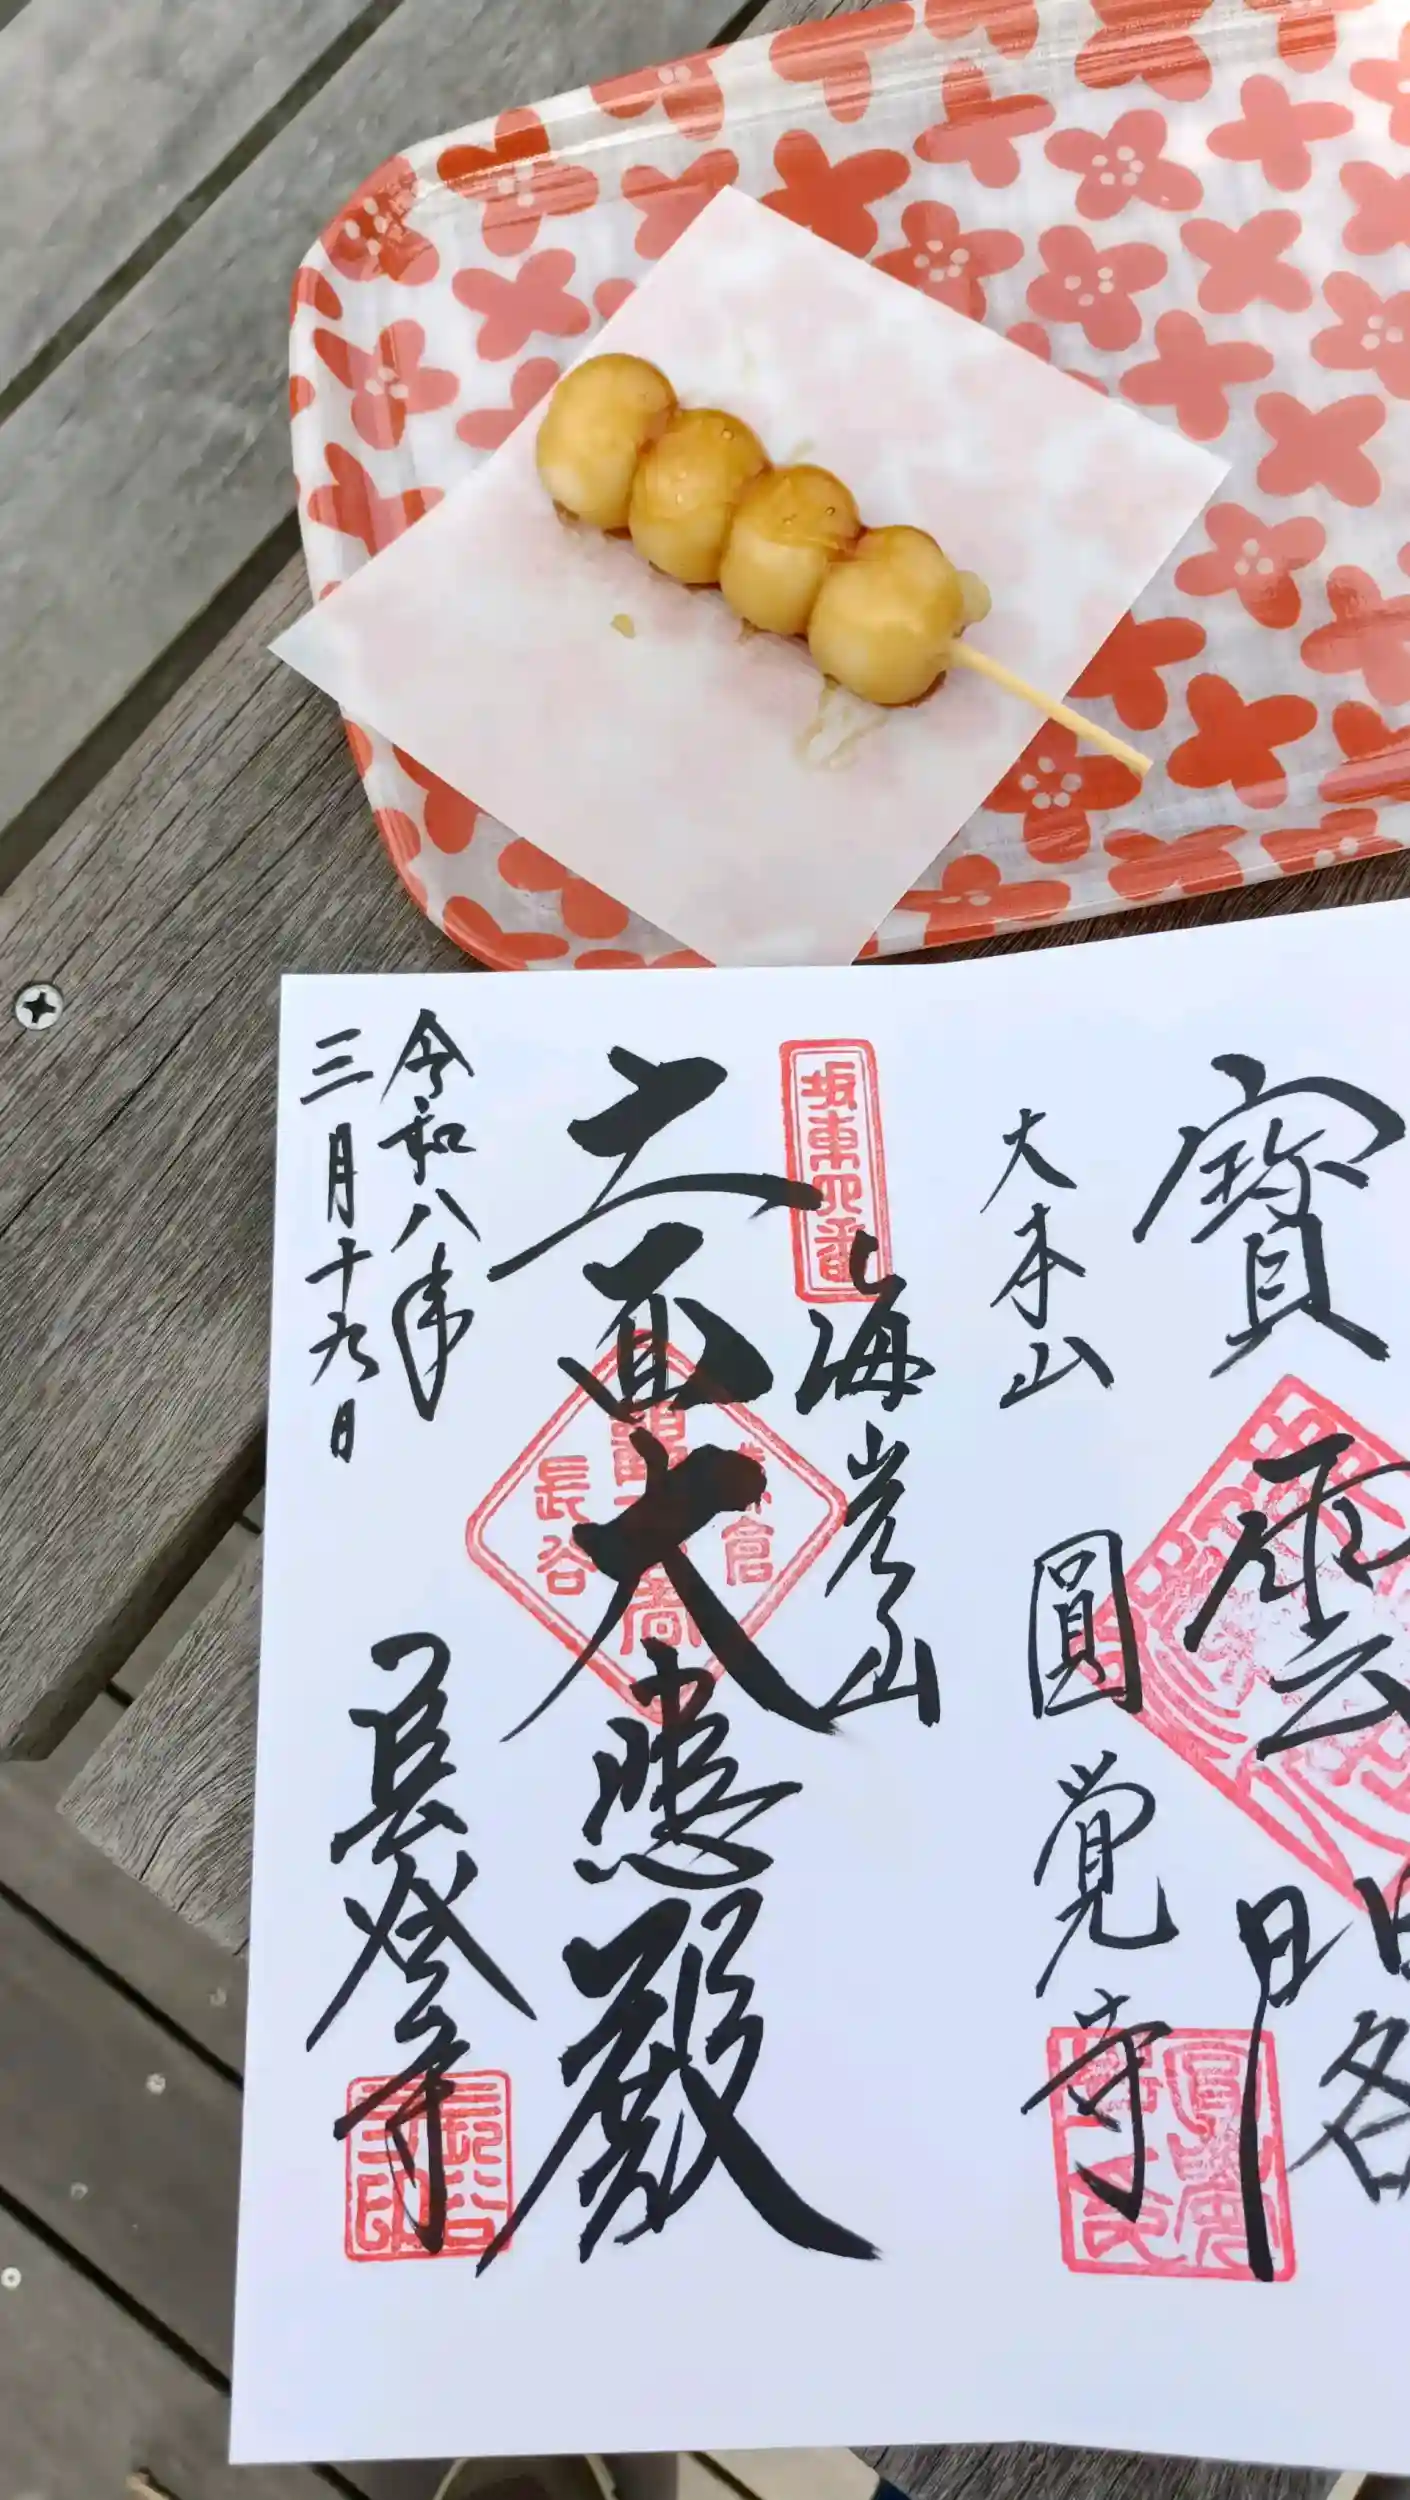 寶
雲閣
大本山
圓覺寺
坂東四番
海岸山
十一面大悲殿
鎌倉
長谷
令和八年
三月十九日
長谷寺